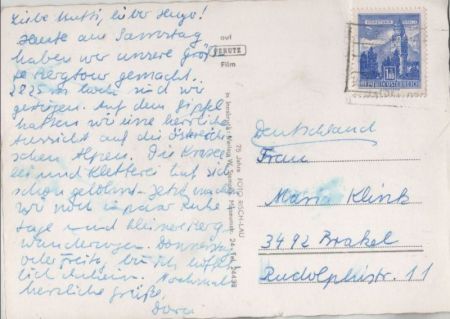 Liebe Mutti, lieber Hugo!
Heute am Samstag
haben wir unsere größ-
te Bergtour gemacht.
2825 m hoch sind wir
gestiegen. Auf dem Gipfel
hatten wir eine herrliche
Aussicht auf die
schen Alpen. Die
lei und Kletterei hat sich
schon gelohnt. Jetzt
wir noch ein paar Ruhe
tage und kleinere Berg
wanderungen. Donnerstag
oder Freitag bin ich hoffent-
lich daheim. Nochmals
herzliche Grüße.
Dora
auf
PERUTZ
Film
75 Jahre FOTO RISCH-LAU
Innsbruck
REPUBLIK ÖSTERREICH
Deutschland
Frau
Maria Klink
3492 Brakel
Rudolphistr. 11